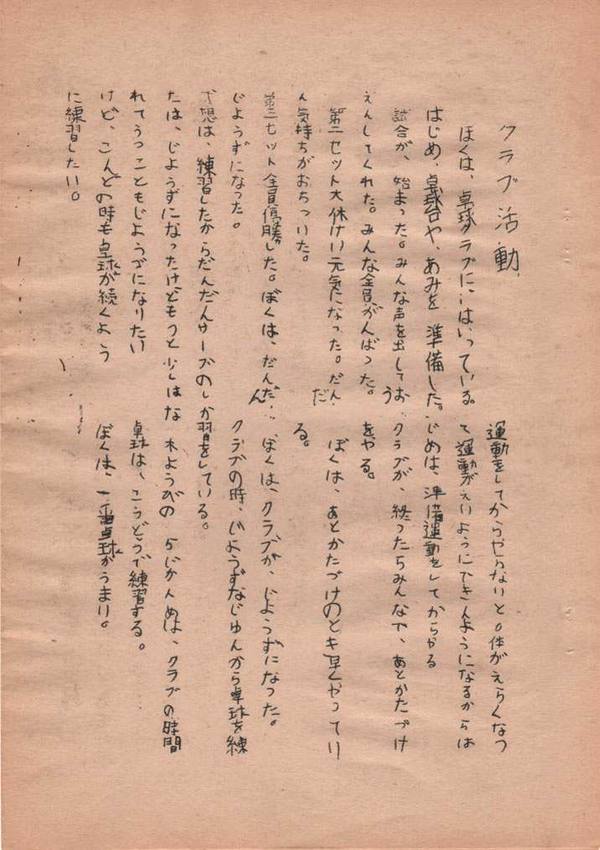 クラブ活動
ぼくは、卓球クラブに、はいっている。
はじめ、卓球台や、あみを準備した。
試合が、始まった。みんな声を出しておう
えんしてくれた。みんな全員がんばった。
第二セット大休けい元気になった。だんだ
ん気持ちがおちついた。
第三セット全員優勝した。ぼくは、だんだん
じょうずになった。
予想は、練習したからだんだんサーブのしか
たは、じょうずになったけどもう少しはな
れてうつこともじょうずになりたい
けど、こんどの時も卓球が続くよう
に練習したい。
運動をしてからやらないと。体がえらくなっ
て運動がえいようにできんようになるからは
じめは、準備運動をしてからやる
クラブが、終ったらみんなで、あとかたづけ
をやる。
ぼくは、あとかたづけのとき早くやってい
る。
ぼくは、クラブが、じょうずになった。
クラブの時、じょうずなじゅんから卓球を練
習をしている。
木ようびの 5じかんめは、クラブの時間
卓球は、こうどうで練習する。
ぼくは、一番卓球がうまい。